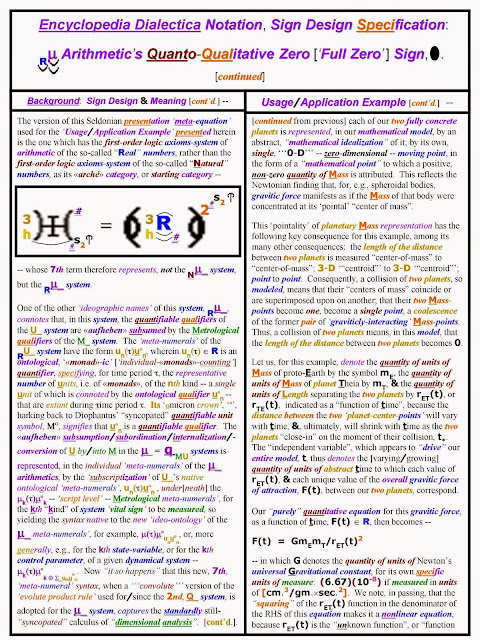 Encyclopedia Dialectica Notation, Sign Design Specification:
Rμ Arithmetic's Quanto-Qualitative Zero ['Full Zero'] Sign, ●.
[continued]
Background: Sign Design & Meaning [cont'd.] --
The version of this Seldonian presentation 'meta-equation'
used for the 'Usage/Application Example' presented herein
is the one which has the first-order logic axioms-system of
arithmetic of the so-called "Real" numbers, rather than the
first-order logic axioms-system of the so-called "Natural"
numbers, as its «arché» category, or starting category --
-- whose 7th term therefore represents, not the Nμ_ system,
but the Rμ_ system.
One of the other 'ideographic names' of this system, Rμ_,
connotes that, in this system, the quantifiable qualifiers of
the U_ system are «aufheben» subsumed by the Metrological
qualifiers of the M_ system. The 'meta-numerals' of the
RU_ system have the form un(τ)uºn, wherein un(τ) ∈ R is an
ontological, '«monad»-ic ['individual-«monads»-counting']
quantifier, specifying, for time period τ, the representative
number of units, i.e. of «monads», of the nth kind -- a single
unit of which is connoted by the ontological qualifier uºn --
that are extant during time period τ. Its 'omicron crown', 'º',
harking back to Diophantus' "syncopated" quantifiable unit
symbol, Mº, signifies that uºn is a quantifiable qualifier. The
«aufheben» subsumption/subordination/internalization/-
conversion of U by/into M in the μ_ = qMU systems is
represented, in the individual 'meta-numerals' of the μ_
arithmetic, by the 'subscriptization' of U_'s native
ontological 'meta-numerals', un(τ)uºn, under[neath] the
μk(τ)μºk -- 'script level' -- Metrological meta-numerals', for
the kth "kind" of system 'vital sign' to be measured, so
yielding the syntax native to the new 'ideo-ontology' of the
μ_ meta-numerals', for example, μ(τ)μºunuºn, or, more
generally, e.g., for the kth state-variable, or for the kth
control parameter, of a given dynamical system --
Now "it so happens" that this new, 7th,
'meta-numeral' syntax, when a '''convolute''' version of the
'evolute product rule' used for/since the 2nd, Q_ system, is
adopted for the μ_ system, captures the standardly still-
"syncopated" calculus of "dimensional analysis". [cont'd.].
Usage/Application Example [cont'd.] --
[continued from previous] each of our two fully concrete
planets is represented, in our mathematical model, by an
abstract, "mathematical idealization" of it; by its own,
single, '''0-D''' -- zero-dimensional -- moving point, in
the form of a "mathematical point" to which a positive,
non-zero quantity of Mass is attributed. This reflects the
Newtonian finding that, for, e.g., spheroidal bodies,
gravitic force manifests as if the Mass of that body were
concentrated at its 'pointal' "center of mass".
This 'pointality' of planetary Mass representation has the
following key consequence for this example, among its
many other consequences: the length of the distance
between two planets is measured "center-of-mass" to
"center-of-mass"; 3-D '"centroid"' to 3-D '"centroid"';
point to point. Consequently, a collision of two planets, so
modeled, means that their "centers of mass" coincide or
are superimposed upon one another; that their two Mass-
points become one, become a single point, a coalescence
of the former pair of 'graviticly-interacting' Mass-points.
Thus, a collision of two planets means, in this model, that
the length of the distance between two planets becomes 0.
Let us, for this example, denote the quantity of units of
Mass of proto-Earth by the symbol mE, the quantity of
units of Mass of planet Theia by mT, & the quantity of
units of Length separating the two planets by rET(t), or
rTE(t), indicated as a "function of time", because the
distance between the two 'planet-center-points' will vary
with time, &, ultimately, will shrink with time as the two
planets "close-in" on the moment of their collision, t*.
The "independent variable", which appears to "drive" our
entire model, t, thus denotes the [varying/growing]
quantity of units of abstract time to which each value of
rET(t), & each unique value of the overall gravitic force
of attraction, F(t), between our two planets, correspond.
Our "purely" quantitative equation for this gravitic force,
as a function of time, F(t) ∈ R, then becomes --
F(t) = GmEmT/rET(t)²
-- in which G denotes the quantity of units of Newton's
universal Gravitational constant, for its own specific
units of measure: (6.67)(10⁻⁸) if measured in units
of [cm.³/gm.×sec.²]. We note, in passing, that the
"squaring" of the rET(t) function in the denominator of
the RHS of this equation makes it a nonlinear equation,
because rET(t) is the "unknown function", or "function